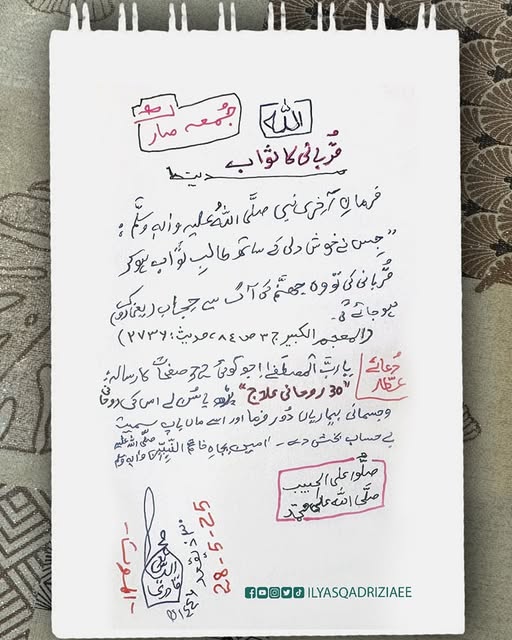 اللہ
جُمعہ مبارک
قُربانی کا ثواب
فرمانِ آخری نبی صلَّی اللہُ علیہ واٰلہٖ وسلَّم:
"جس نے خوش دلی کے ساتھ طالبِ ثواب ہوکر
قُربانی کی تو وہ جہنَّم کی آگ سے حِجاب (یعنی روک)
ہوجائے گی۔
(المعجم الکبیر ج ۳ ص ۸۴، حدیث: ۲۷۳۶)
دُعائے عطّار
یا ربَّ المصطفےٰ! جو کوئی 22 صفحات کا رسالہ:
"30 روحانی علاج" پڑھ یا سُن لے اس کی روحانی
و جسمانی بیماریاں دُور فرما اور اسے ماں باپ سمیت
بے حساب بخش دے۔ اٰمین بجاہِ خاتمِ النَّبِیّٖن صلَّی اللہ علیہ واٰلہٖ وسلَّم
صلُّوا علی الحبیب
صلَّی اللہُ علٰی محمَّد
28-5-25
ILYASQADRIZIAEE